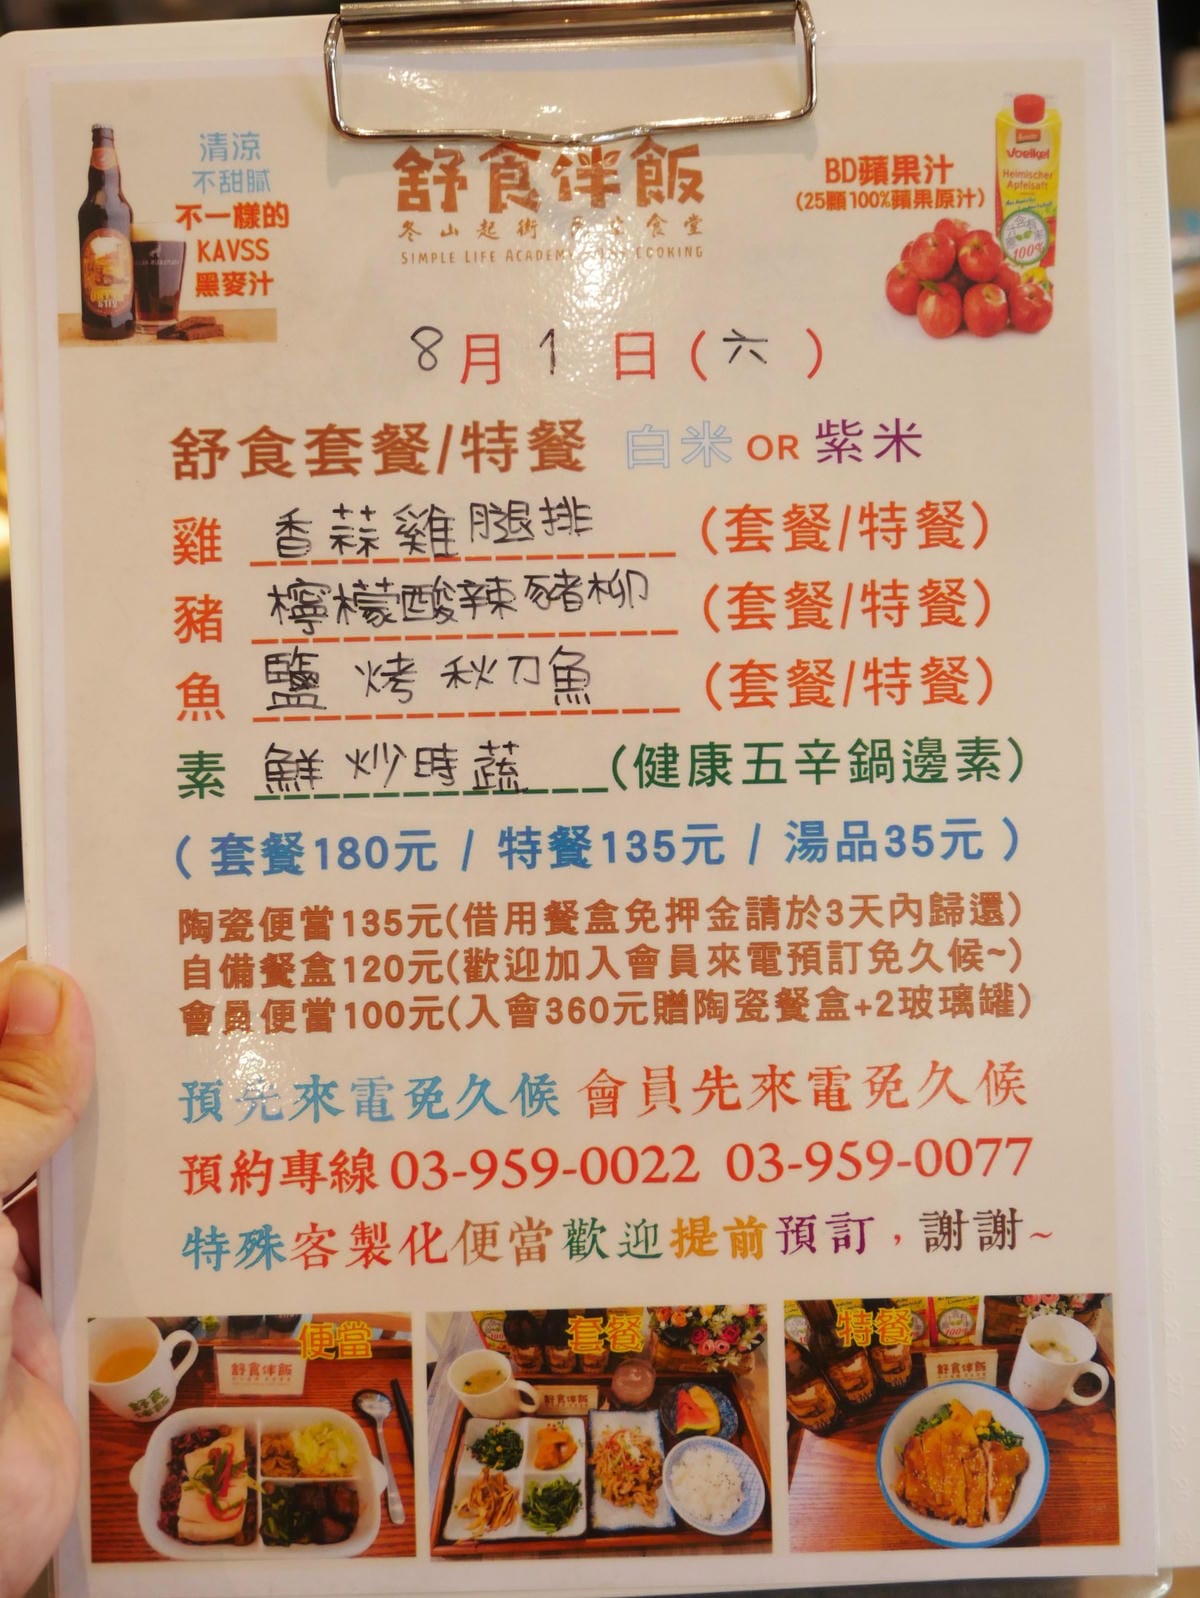 清涼
不甜膩
不一樣的
KAVSS
黑麥汁
舒食伴飯
冬山起街 食堂
SIMPLE LIFE ACADEMY COOKING
BD蘋果汁
(25顆100%蘋果原汁)
Voelkel
Heimischer
Apfelsaft
100%
8月1日(六)
舒食套餐/特餐 白米 OR 紫米
雞 香蒜雞腿排 (套餐/特餐)
豬 檸檬酸辣豬柳 (套餐/特餐)
魚 鹽烤秋刀魚 (套餐/特餐)
素 鮮炒時蔬 (健康五辛鍋邊素)
( 套餐180元 / 特餐135元 / 湯品35元 )
陶瓷便當135元(借用餐盒免押金請於3天內歸還)
自備餐盒120元(歡迎加入會員來電預訂免久候~)
會員便當100元(入會360元贈陶瓷餐盒+2玻璃罐)
預先來電免久候 會員先來電免久候
預約專線 03-959-0022 03-959-0077
特殊客製化便當歡迎提前預訂，謝謝~
便當
舒食伴飯
舒食伴飯
套餐
舒食伴飯
特餐
舒食伴飯